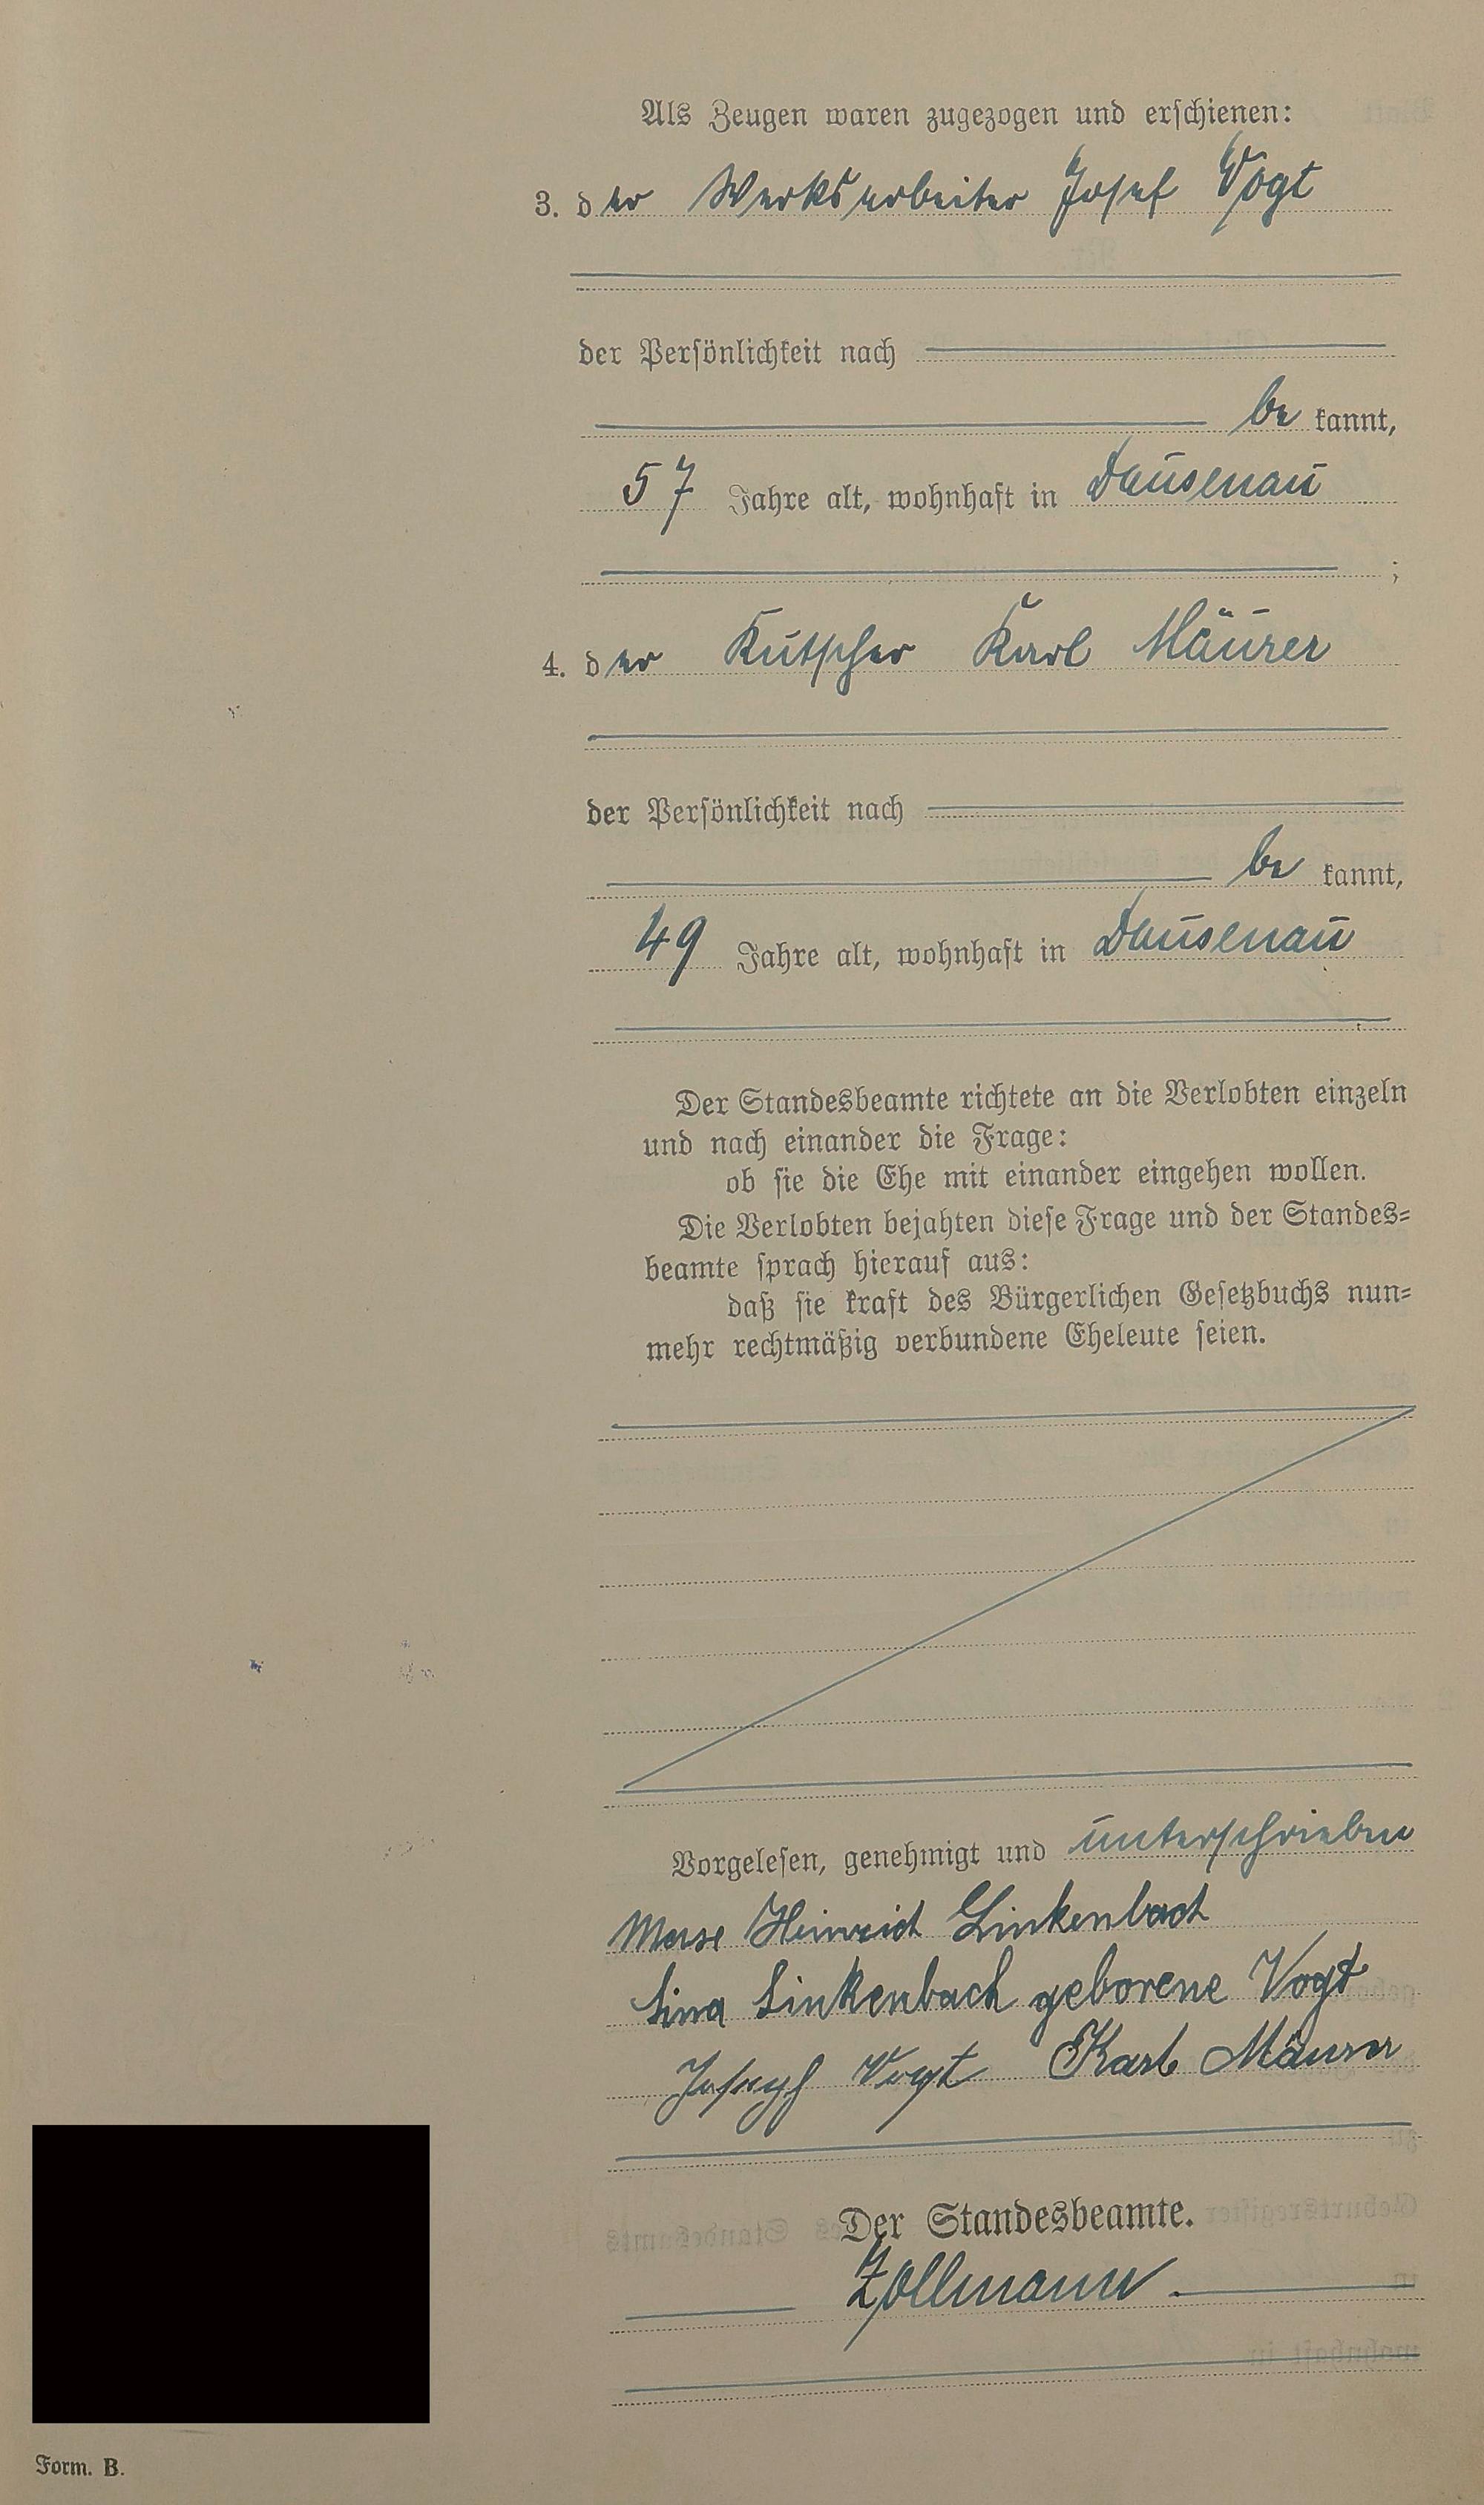 Als Zeugen waren zugezogen und erschienen:
3. der Werksarbeiter Josef Vogt
der Persönlichkeit nach
be kannt,
57 Jahre alt, wohnhaft in Dausenau
;
4. der Kutscher Karl Mäurer
der Persönlichkeit nach
be kannt,
49 Jahre alt, wohnhaft in Dausenau
Der Standesbeamte richtete an die Verlobten einzeln
und nach einander die Frage:
ob sie die Ehe mit einander eingehen wollen.
Die Verlobten bejahten diese Frage und der Standes=
beamte sprach hierauf aus:
daß sie kraft des Bürgerlichen Gesetzbuchs nun=
mehr rechtmäßig verbundene Eheleute seien.
Vorgelesen, genehmigt und unterschrieben
Heinrich Linkenbach
Lina Linkenbach geborene Vogt
Joseph Vogt Karl Mäurer
Der Standesbeamte.
Zollmann
Form. B.